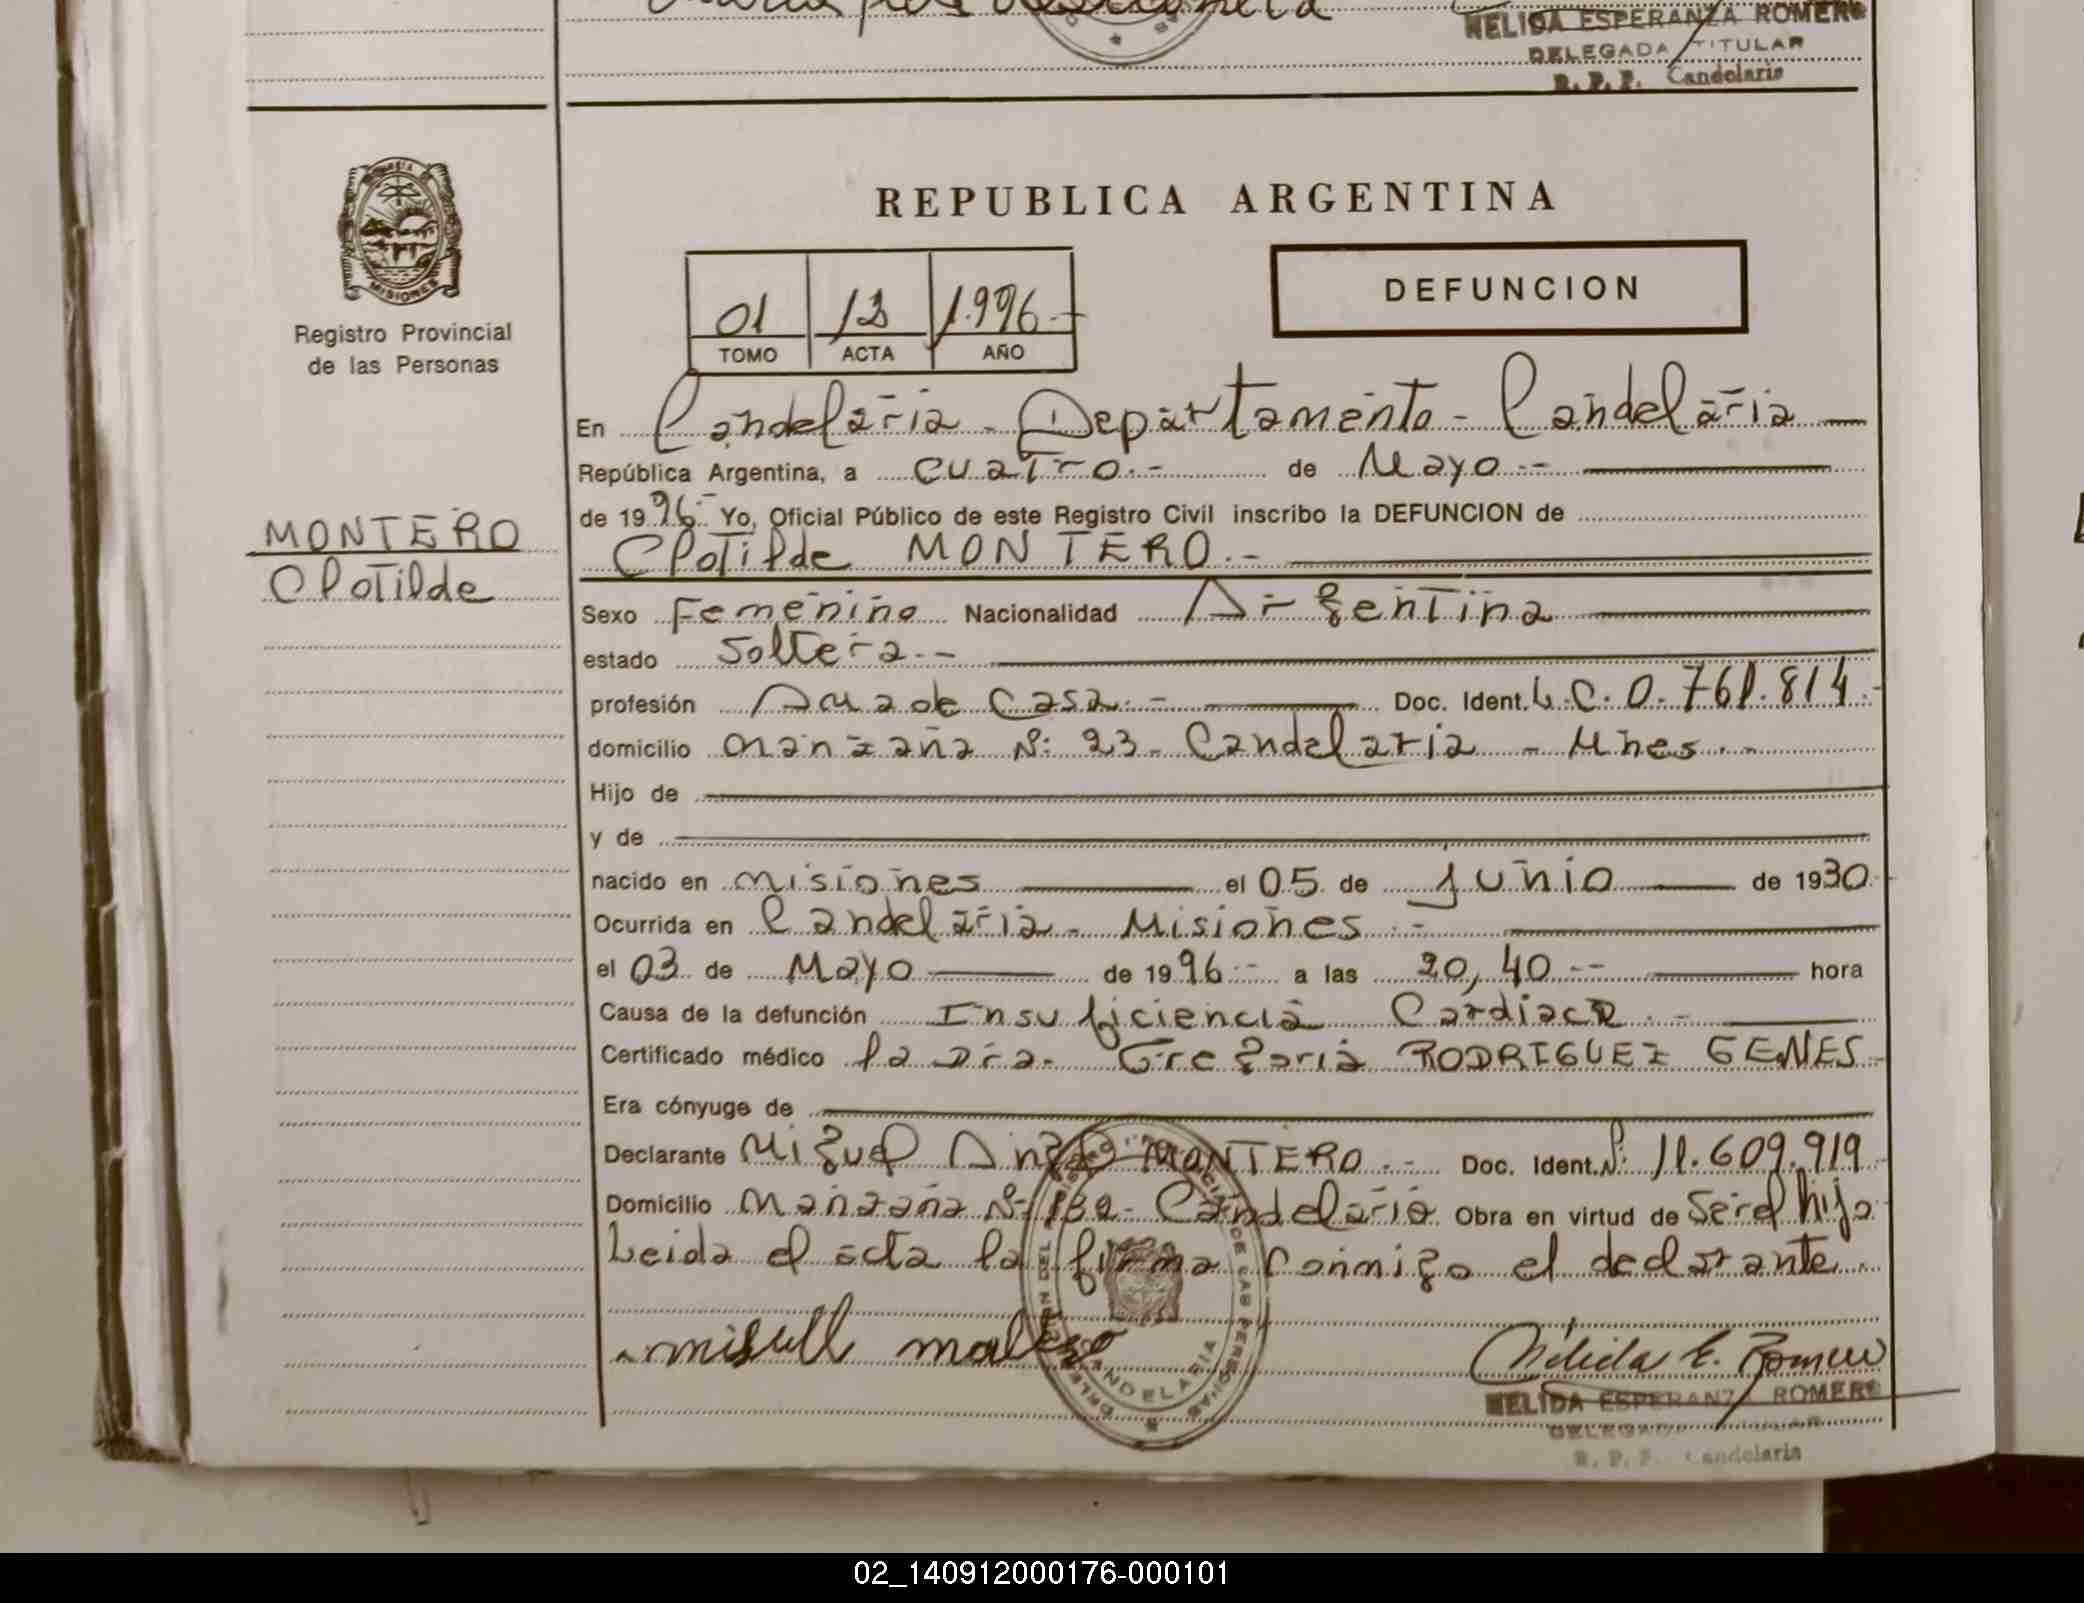 NELIDA ESPERANZA ROMERO
DELEGADA TITULAR
R. P. P. Candelaria
MISIONES
Registro Provincial
de las Personas
REPUBLICA ARGENTINA
01 13 1.996.-
TOMO ACTA AÑO
DEFUNCION
En Candelaria - Departamento - Candelaria
República Argentina, a cuatro.- de Mayo.-
de 1996.- Yo, Oficial Público de este Registro Civil inscribo la DEFUNCION de
Clotilde MONTERO.-
MONTERO
Clotilde
Sexo Femenino Nacionalidad Argentina
estado Soltera.-
profesión Ama de Casa.- Doc. Ident. L.C. 0.761.814.-
domicilio Manzana Nº: 23 - Candelaria - Mnes.-
Hijo de
y de
nacido en Misiones el 05 de Junio de 1930.-
Ocurrida en Candelaria - Misiones.-
el 03 de Mayo de 1996.- a las 20,40.- hora
Causa de la defunción Insuficiencia Cardiaca.-
Certificado médico la Dra. Gregoria RODRIGUEZ GENES.-
Era cónyuge de
Declarante Miguel Angel MONTERO.- Doc. Ident. Nº: 11.609.919
Domicilio Manzana Nº 132- Candelaria Obra en virtud de Ser el hijo
Leida el acta la firma conmigo el declarante.
Nélida E. Romero
NELIDA ESPERANZA ROMERO
DELEGADA TITULAR
R. P. P. Candelaria
02_140912000176-000101